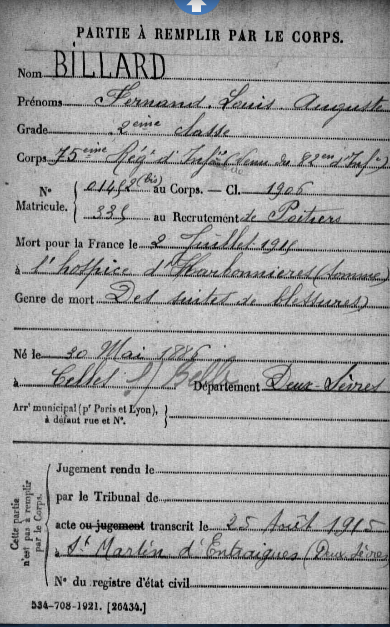 PARTIE À REMPLIR PAR LE CORPS.
Nom BILLARD
Prénoms Fernand Louis Auguste
Grade 2eme classe
Corps 75eme Rég d'Infie (venu du 82en d'Infie)
N° Matricule. { 01452 (bis) au Corps. — Cl. 1906
339 au Recrutement de Poitiers
Mort pour la France le 2 Juillet 1915
à l'hospice d'Harbonnieres (Somme)
Genre de mort Des suites de blessures)
Né le 30 Mai 1886
à Celles s/ Belle Département Deux-Sèvres
Arrt municipal (pr Paris et Lyon), à défaut rue et N°. }
Cette partie n'est pas à remplir par le Corps.
Jugement rendu le
par le Tribunal de
acte ou jugement transcrit le 25 Août 1915
à St Martin d'Entraigues (Deux Sèvres
N° du registre d'état civil
534-708-1921. [26434.]